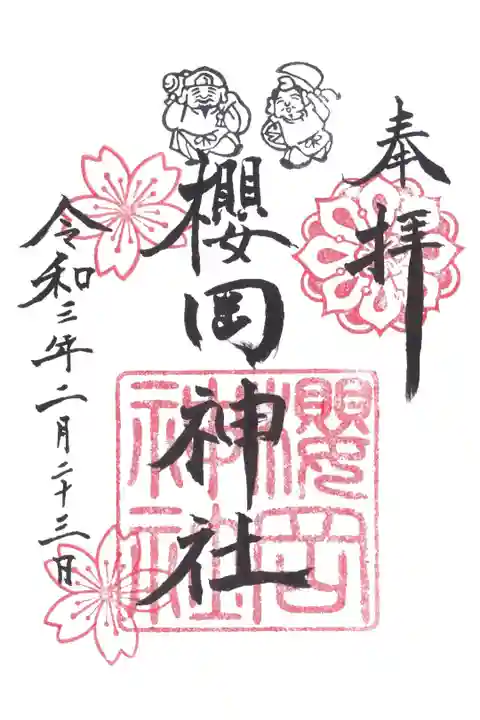 奉拝
櫻岡神社
櫻岡
神社
令和三年二月二十三日